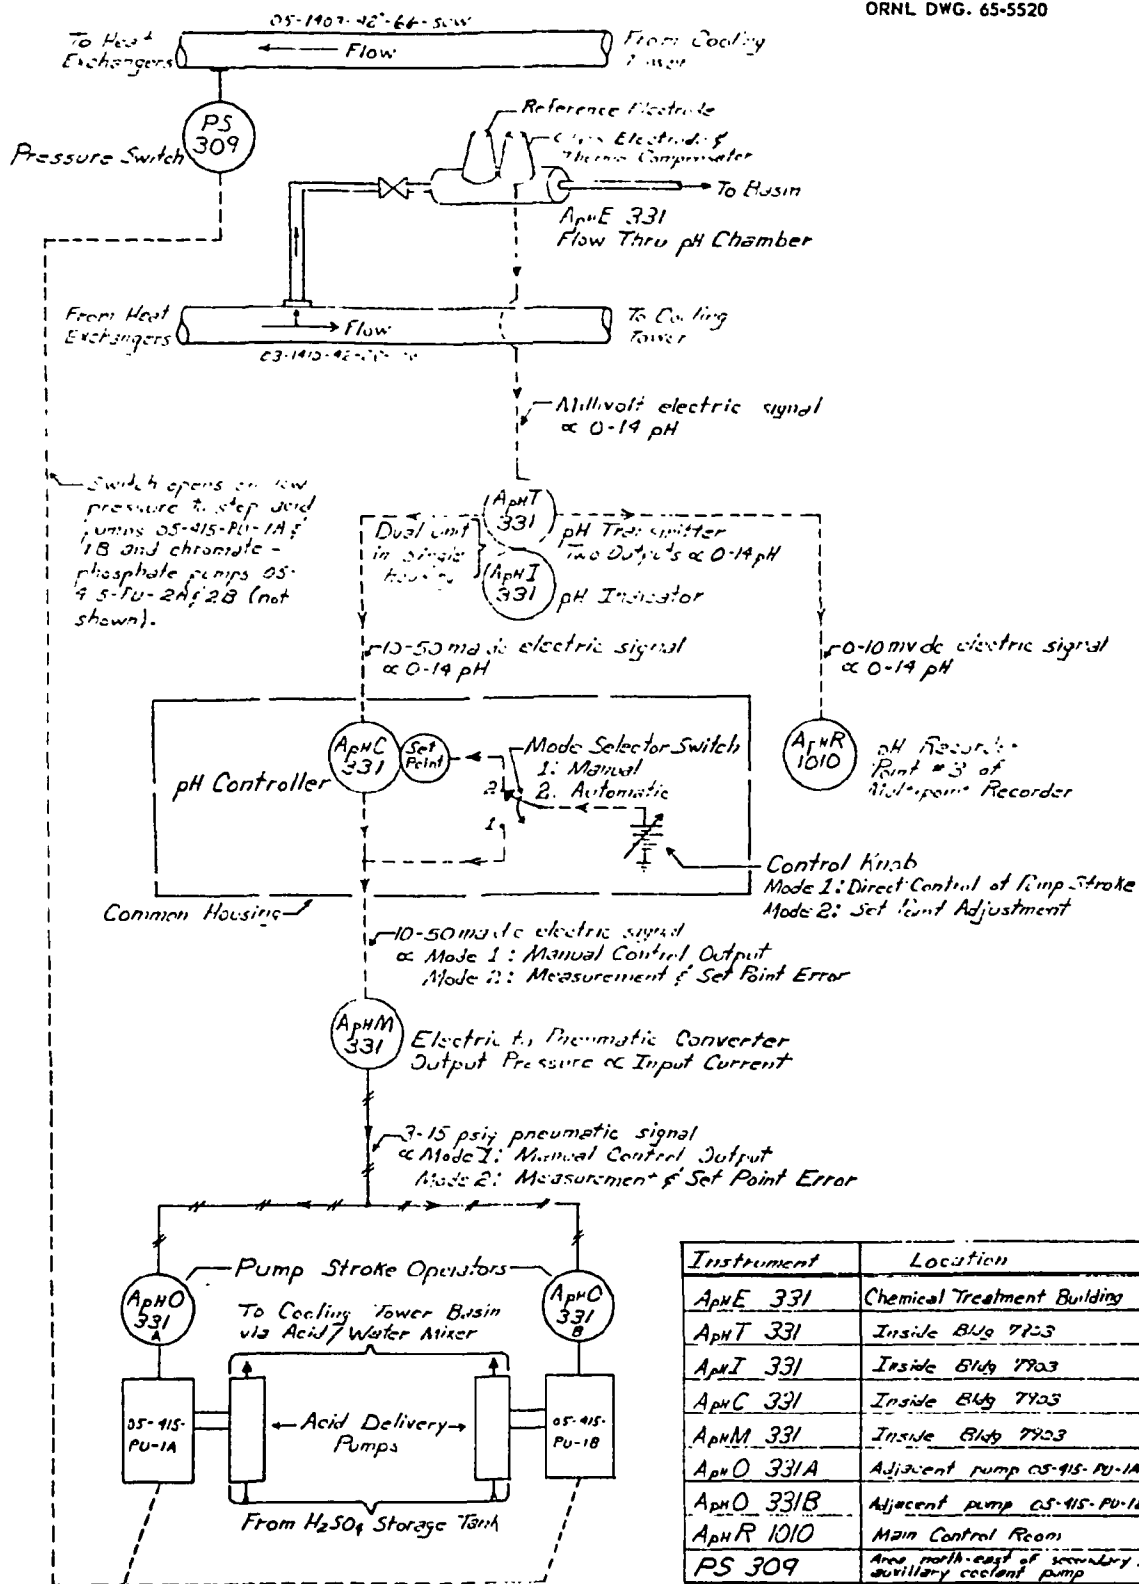 ORNL DWG. 65-5520
To Heat
Exchangers
Flow
From Cooling
PS
309
Pressure Switch
Reference Electrode
Electrode &
Thermo Compensator
To Basin
ApHE 331
Flow Thru pH Chamber
From Heat
Exchangers
Flow
To Cooling
Tower
Millivolt electric signal
∝ 0-14 pH
Switch opens on low
pressure to stop acid
pumps 05-415-PU-1A &
1B and chromate-
phosphate pumps 05-
2A & 2B (not
shown).
Dual unit
in single
housing
ApHT
331
pH Transmitter
Two Outputs ∝ 0-14 pH
ApHI
331
pH Indicator
10-50 ma dc electric signal
∝ 0-14 pH
0-10 mv dc electric signal
∝ 0-14 pH
ApHC
331
Set
Point
pH Controller
Mode Selector Switch
1: Manual
2: Automatic
2
1
ApHR
1010
pH Recorder
Point #3 of
Multipoint Recorder
Control Knob
Mode 1: Direct Control of Pump Stroke
Mode 2: Set Point Adjustment
Common Housing
10-50 ma dc electric signal
∝ Mode 1: Manual Control Output
Mode 2: Measurement & Set Point Error
ApHM
331
Electric to Pneumatic Converter
Output Pressure ∝ Input Current
3-15 psig pneumatic signal
∝ Mode 1: Manual Control Output
Mode 2: Measurement & Set Point Error
Pump Stroke Operators
ApHO
331
A
ApHO
331
B
To Cooling Tower Basin
via Acid/Water Mixer
05-415-
PU-1A
Acid Delivery
Pumps
05-415-
PU-1B
From H₂SO₄ Storage Tank
Instrument Location
ApHE 331 Chemical Treatment Building
ApHT 331 Inside Bldg 7903
ApHI 331 Inside Bldg 7903
ApHC 331 Inside Bldg 7903
ApHM 331 Inside Bldg 7903
ApHO 331A Adjacent pump 05-415-PU-1A
ApHO 331B Adjacent pump 05-415-PU-1B
ApHR 1010 Main Control Room
PS 309 Area north-east of secondary
auxillary coolant pump